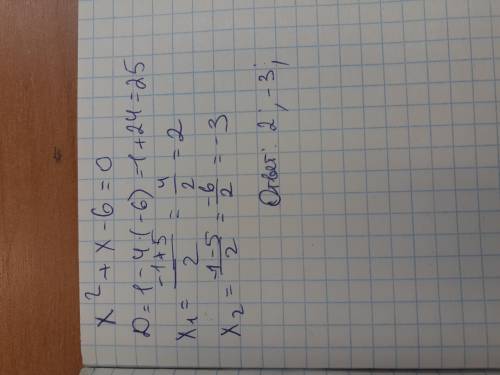 x² + x - 6 = 0
D = 1 - 4·(-6) = 1 + 24 = 25
x₁ = (-1+5)/2 = 4/2 = 2
x₂ = (-1-5)/2 = -6/2 = -3
Ответ: 2; -3;